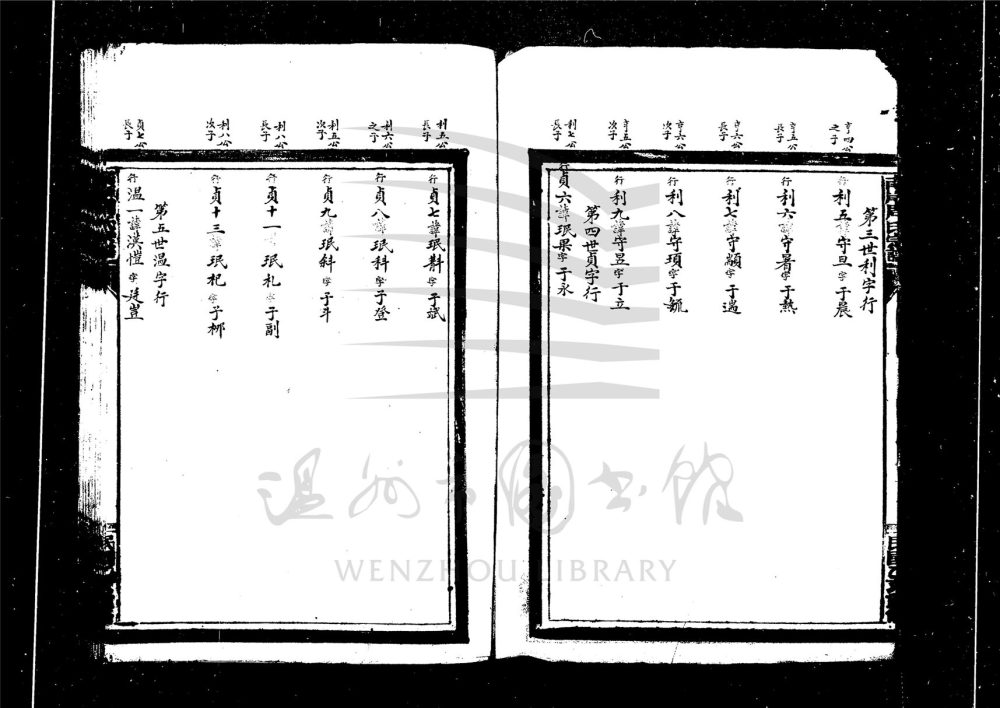 第三世利字行
亨四公之子
行利五諱守旦字于晨
亨五公長子
行利六諱守暑字于熱
亨六公長子
行利七諱守顓字于過
亨六公次子
行利八諱守頊字于
亨五公次子
行利九諱守昱字于立
第四世貞字行
利七公長子
行貞六諱珉果字于永
利五公長子
行貞七諱珉斠字于斌
利六公之子
行貞八諱珉科字于登
利五公次子
行貞九諱珉斜字于斗
利八公長子
行貞十一諱珉札字于副
利八公次子
行貞十三諱珉杞字子柳
第五世温字行
貞七公長子
行温一諱漢愷字廷豈
温州市图书馆
WENZHOU LIBRARY